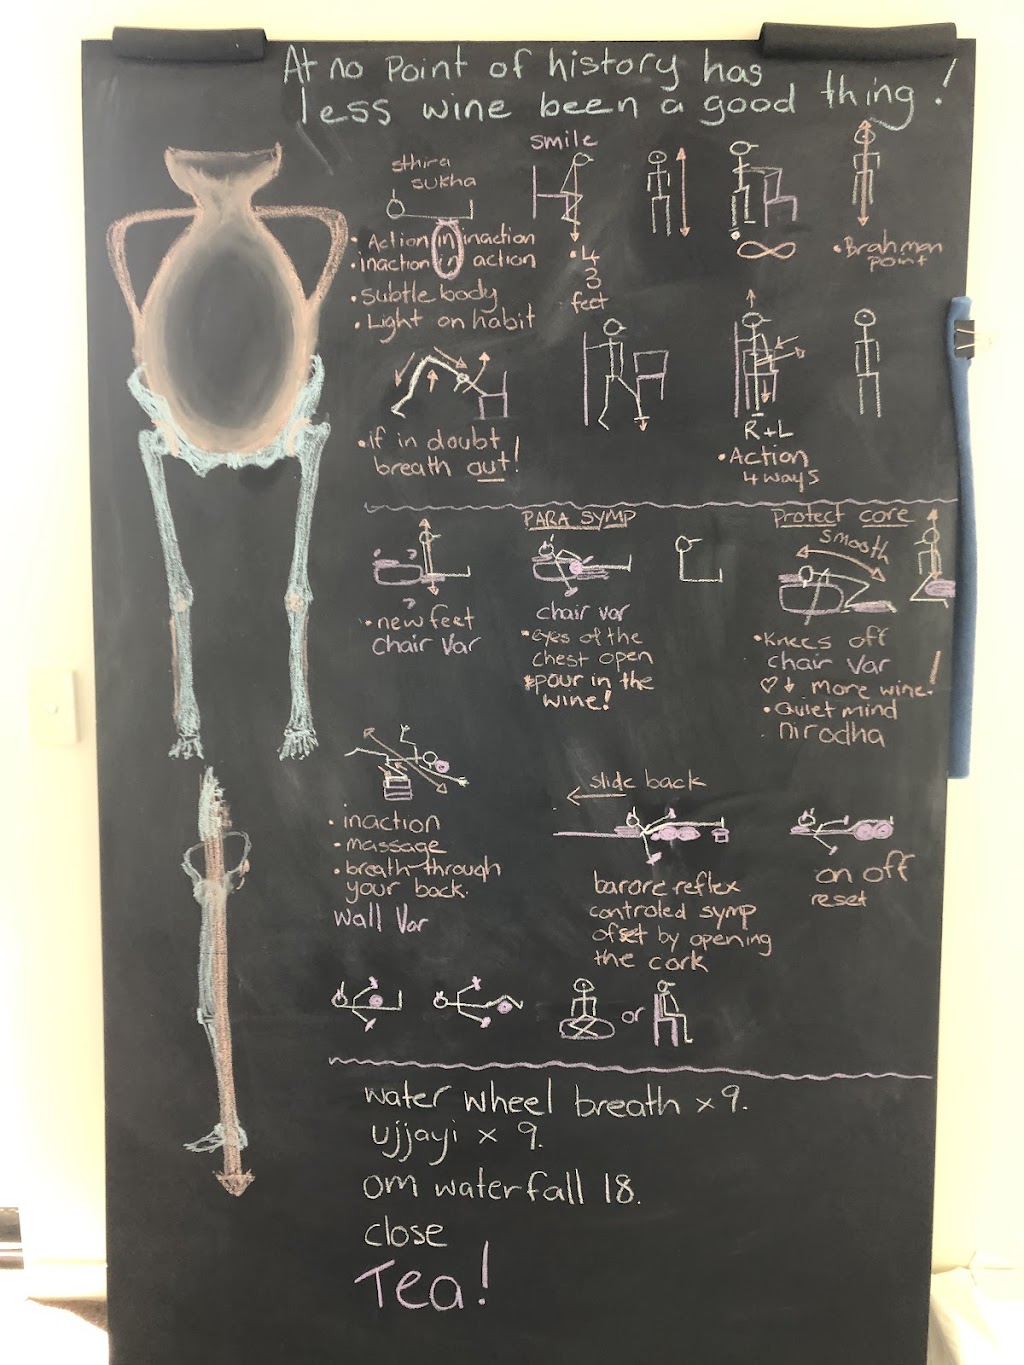 At no point of history has
less wine been a good thing!
sthira
sukha
• Action in inaction
• inaction in action
• subtle body
• Light on habit
smile
• 4
3
feet
• Brahman
point
• if in doubt
breath out!
R+L
• Action
4 ways
• new feet
chair var
PARA SYMP
chair var
• eyes of the
chest open
• pour in the
wine!
Protect core
smooth
• Knees off
chair var
♡↓ more wine!
• Quiet mind
nirodha
• inaction
• massage
• breath through
your back.
wall var
slide back
barore reflex
controled symp
ofset by opening
the cork
on off
reset
or
water wheel breath × 9.
ujjayi × 9.
om waterfall 18.
close
Tea!